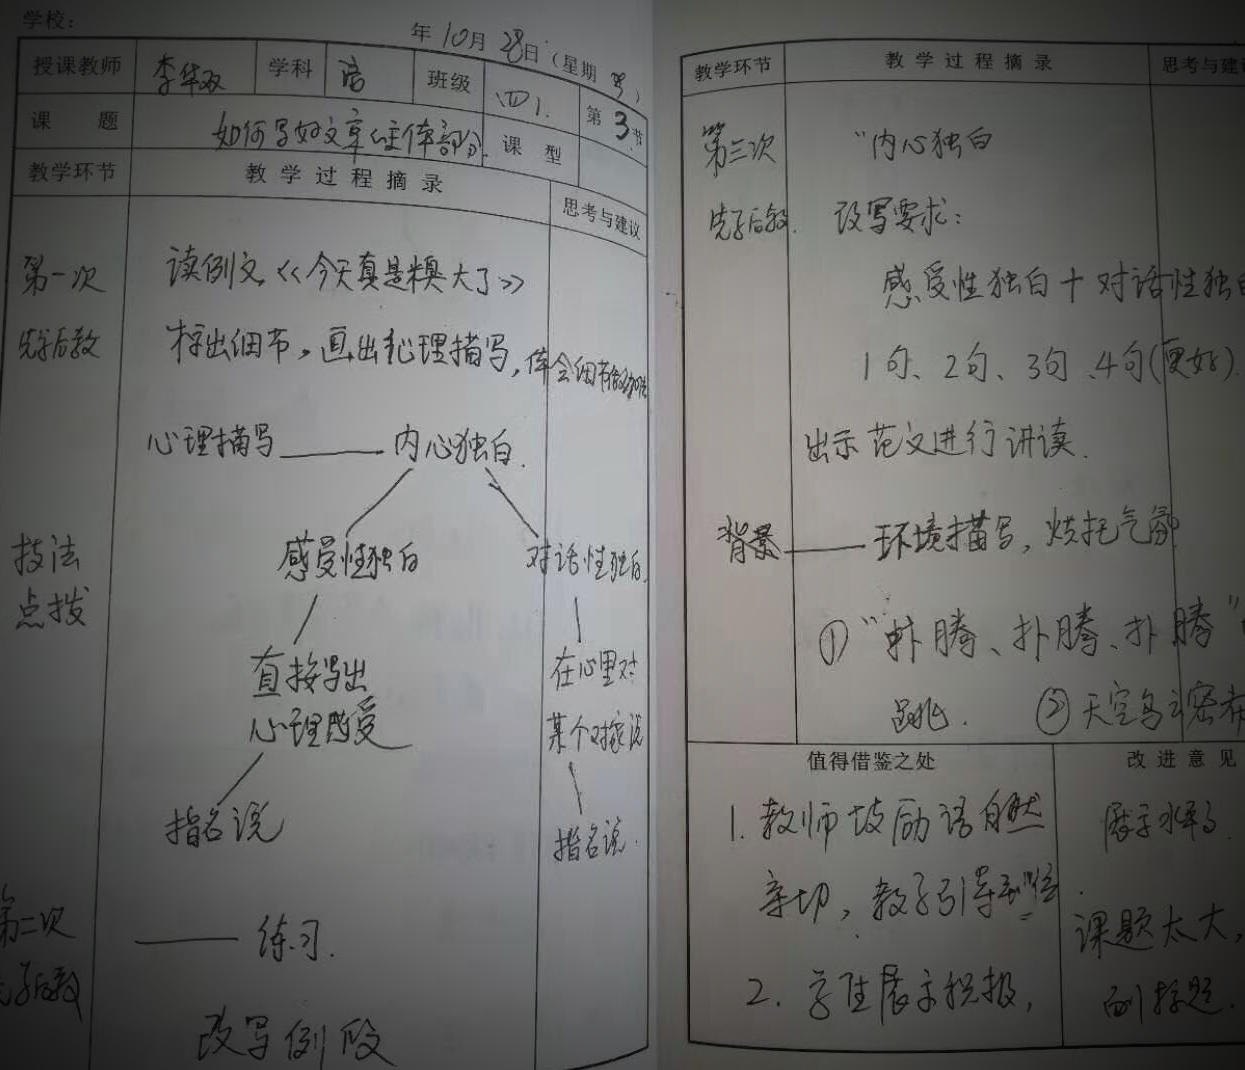 学校：
年10月28日（星期 ）
授课教师 李华双 学科 语 班级 （四）1. 第3节
课题 如何写好文章（主体部分） 课型
教学环节 教学过程摘录 思考与建议
第一次 读例文《今天真是糗大了》
先学后教 标出细节，画出心理描写，体会细节
心理描写——内心独白.
技法
点拨
感受性独白 对话性独白.
直接写出 在心里对
心理感受 某个对象说
指名说 指名说.
第二次
先学后教
——练习.
改写例段
教学环节 教学过程摘录 思考与建
第三次 “内心独白
先学后教. 改写要求：
感受性独白+对话性独白
1句、2句、3句、4句（更好）.
出示范文进行讲读.
背景——环境描写，烘托气氛
①“扑腾、扑腾、扑腾”
跳. ②天空乌云密布
值得借鉴之处 改进意见
1. 教师鼓励语自然
亲切，教学引导到位.
2. 学生展示积极，
展示
课题太大，
副标题.